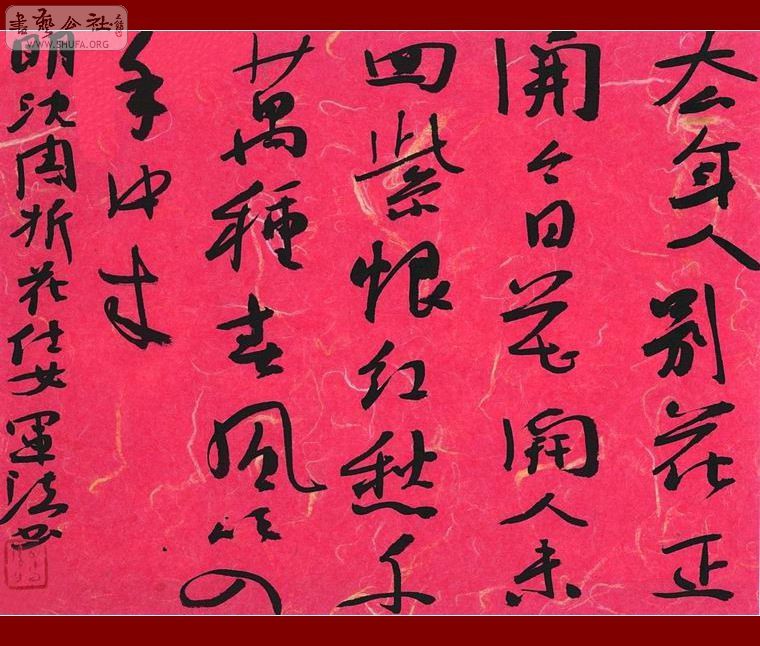 書藝公社
WWW.SHUFA.ORG
去年人别花正
開今日花開人未
回紫恨红愁千
萬種春風吹入
手中来
明沈周折花仕女书